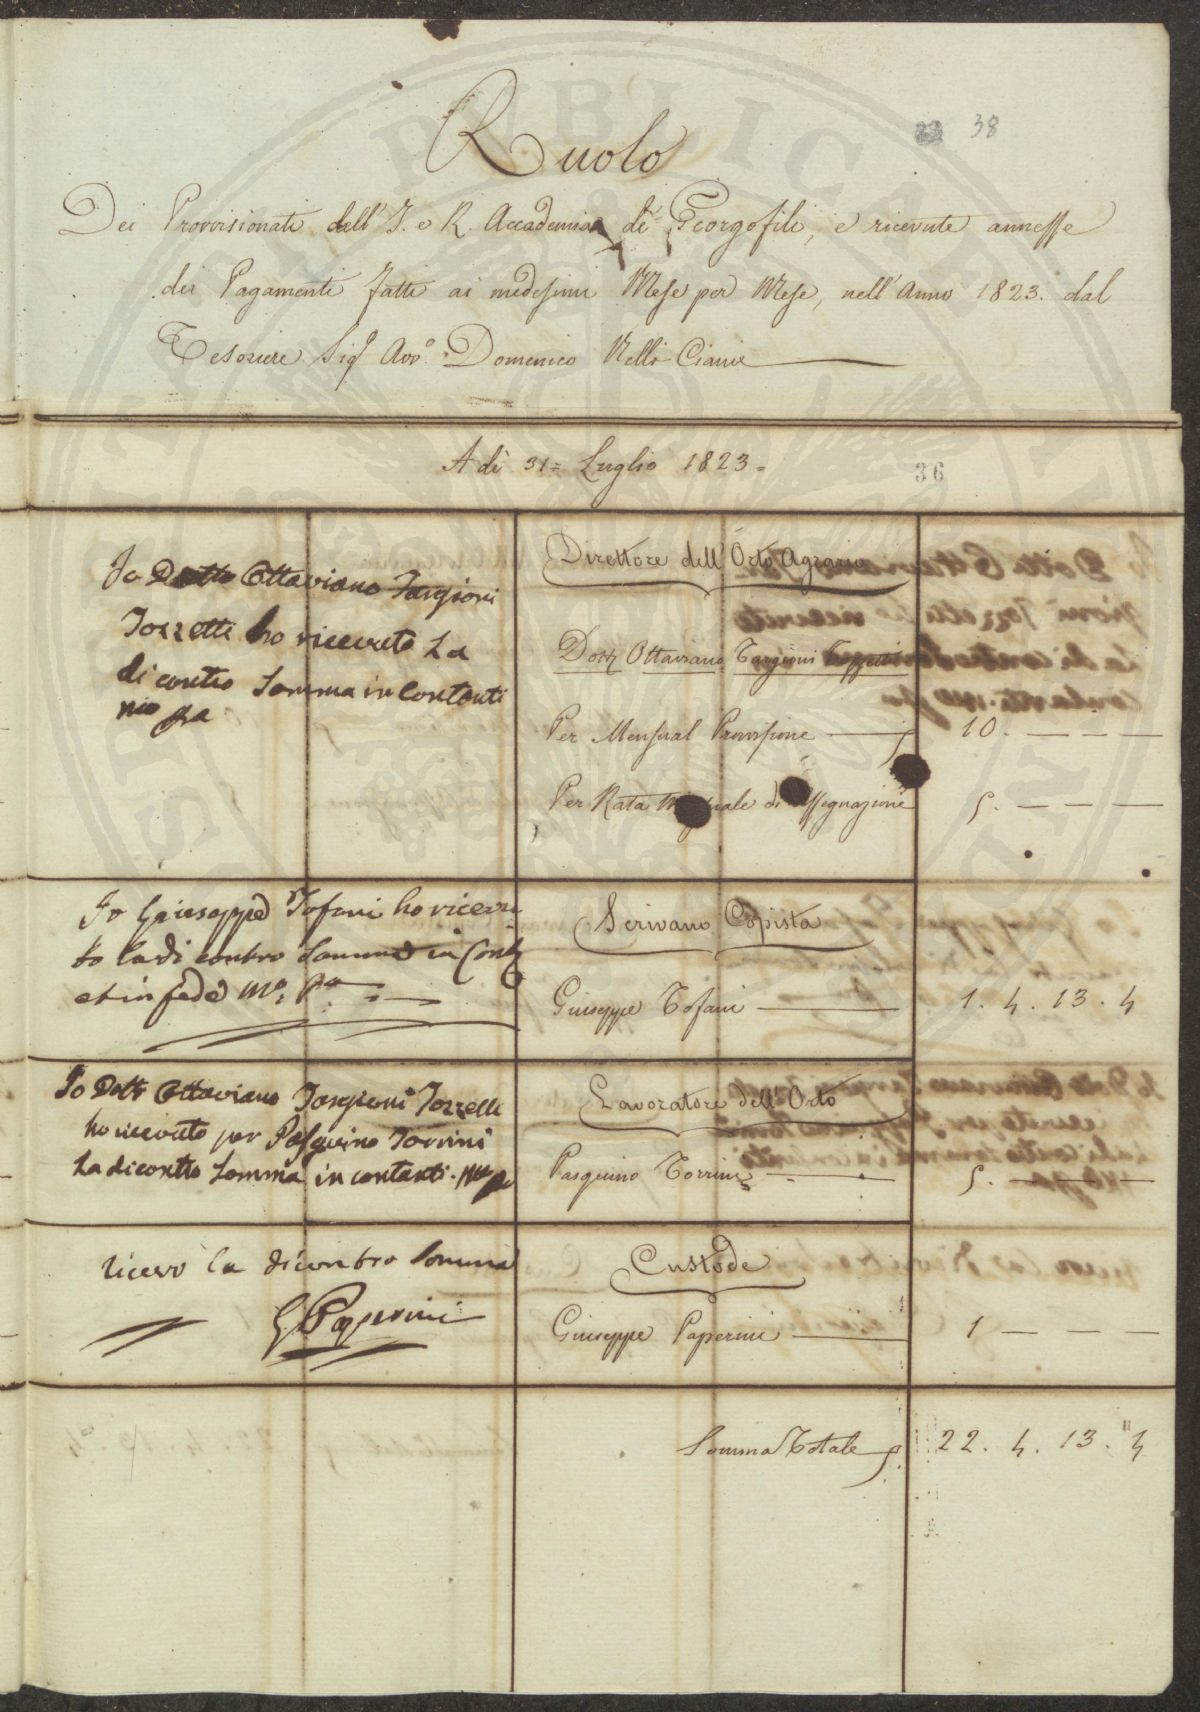 38
Ruolo
Dei Provvisionati dell' I. e R. Accademia di Georgofili, e ricevute annesse
dei Pagamenti fatti ai medesimi Mese per Mese, nell' Anno 1823. dal
Tesoriere Sig.r Avv.o Domenico Nelli Ciani
A dì 31 = Luglio 1823 =
36
Io Dott. Ottaviano Targioni
Tozzetti ho ricevuto La
di contro Somma in Contanti
mo pa
Direttore dell' Orto Agrario
Dott. Ottaviano Targioni Tozzetti
Per Mensual Provvisione 10. — — —
Per Rata Mensuale di Assegnazione 5. — — —
Io Giuseppe Tofani ho ricevu
to la di contro Somma in Cont
et in fede Mo. Pa
Scrivano Copista
Giuseppe Tofani 1. 4. 13. 4
Io Dott. Ottaviano Targioni Tozzetti
ho ricevuto per Pasquino Torrini
La di contro Somma in contanti. mo pa
Lavoratore dell' Orto
Pasquino Torrini 5. — — —
ricevo la di contro Somma
G Paperini
Custode
Giuseppe Paperini 1 — — —
Somma Totale 22. 4. 13. 4